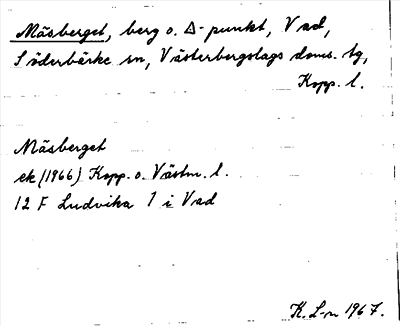 Mäsberget, berg o. Δ-punkt, Vad,
Söderbärke sn, Västerbergslags doms. tg,
Kopp. l.
Mäsberget
ek (1966) Kopp. o. Västm. l.
12 F Ludvika 1 i Vad
K. L-n 1967.